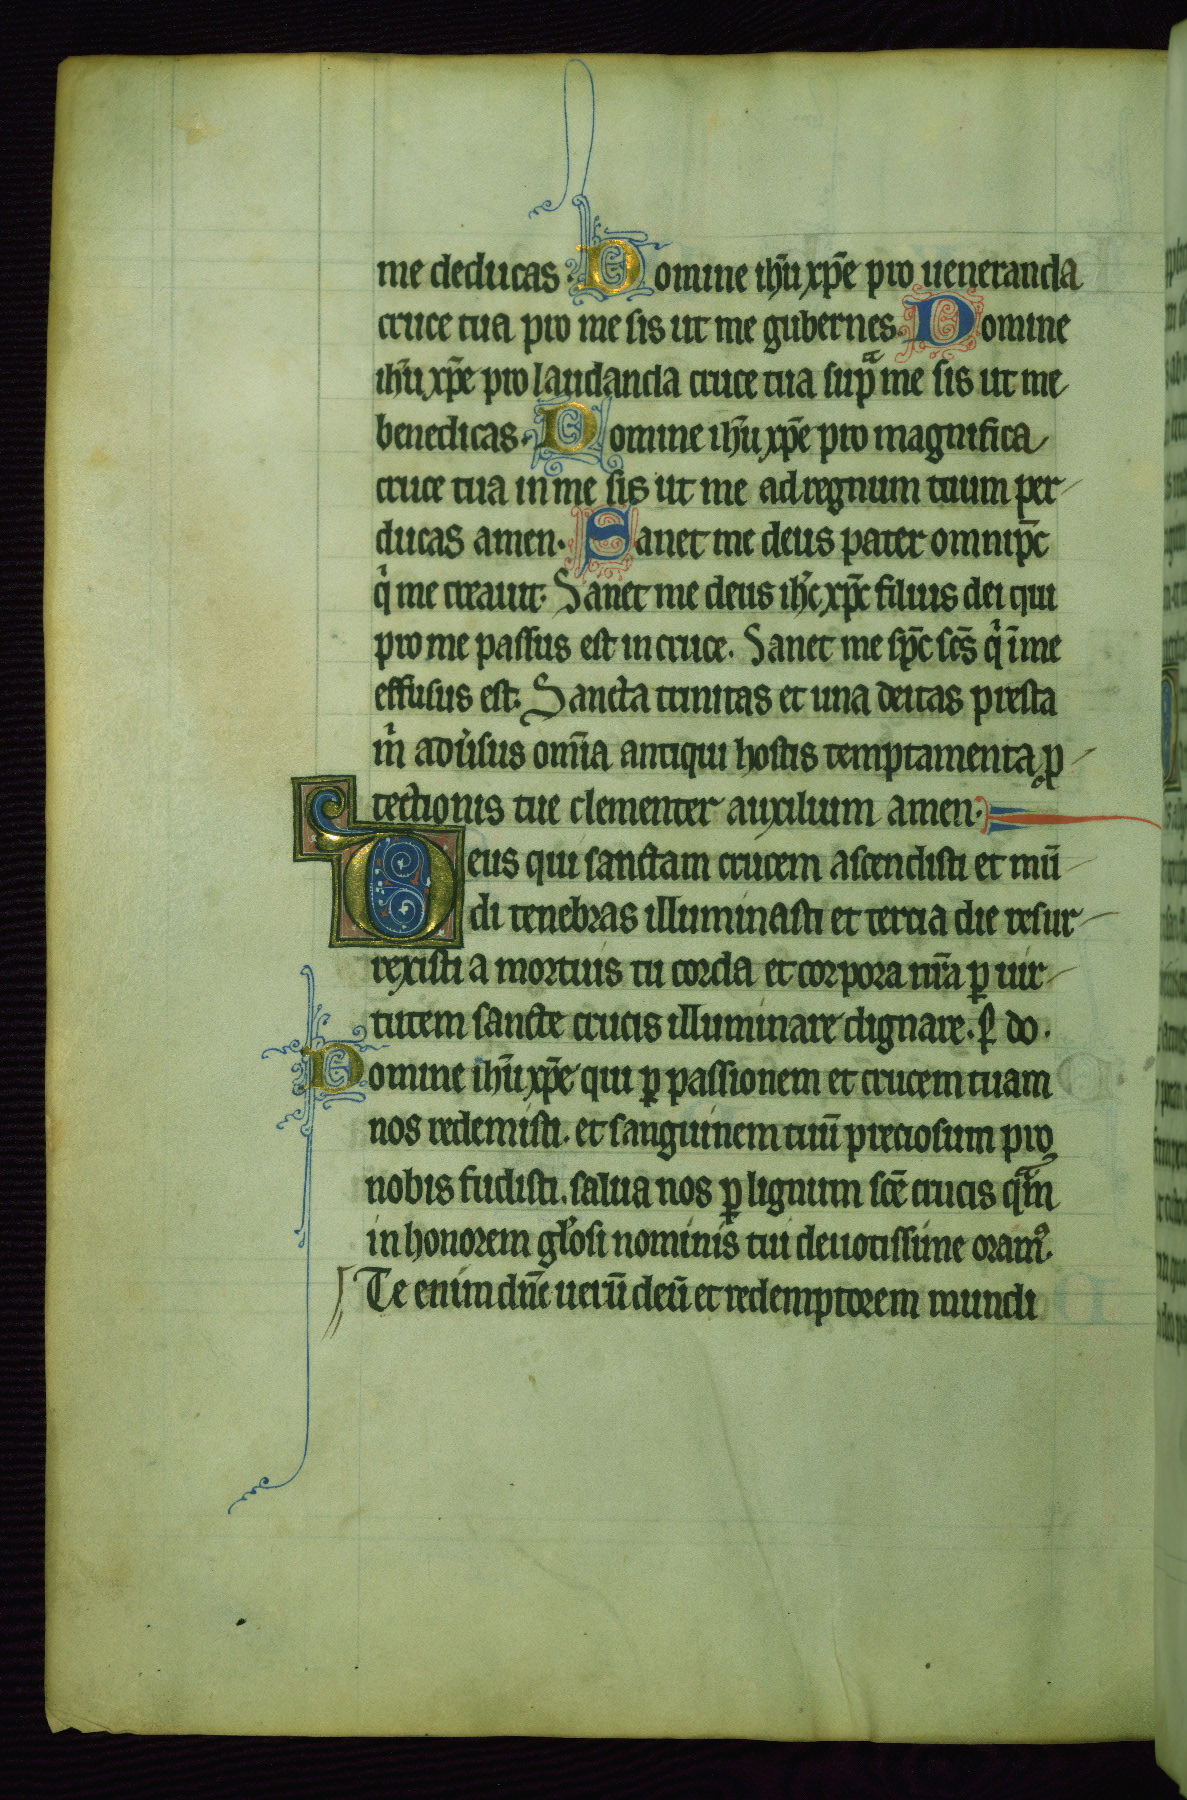 me deducas. Domine ih̄u xp̄e pro ueneranda
cruce tua pro me sis ut me gubernes. Domine
ih̄u xp̄e pro laudanda cruce tua sup̄ᵃ me sis ut me
benedicas. Domine ih̄u xp̄e pro magnifica
cruce tua in me sis ut me ad regnum tuum per
ducas amen. Sanet me deus pater omnip̄c
qⁱ me creauit. Sanet me deus ih̄c xp̄c filius dei qui
pro me passus est in cruce. Sanet me sp̄c sc̄s qⁱ ī me
effusus est. Sancta trinitas et una deitas presta
mⁱ adu̓sus om̄ia antiqui hostis temptamenta ꝓ
tectionis tue clementer auxilium amen.
Deus qui sanctam crucem ascendisti et mū
di tenebras illuminasti et tercia die resur
rexisti a mortuis tu corda et corpora nr̄a ꝑ uir
tutem sancte crucis illuminare dignare. ꝑ do.
Domine ih̄u xp̄e qui ꝑ passionem et crucem tuam
nos redemisti. et sanguinem tuū preciosum pro
nobis fudisti. salua nos ꝑ lignum sc̄e crucis qᵃm
in honorem gl̓osi nominis tui deuotissime oramꝰ.
Te enim dn̄e uerū deū et redemptorem mundi